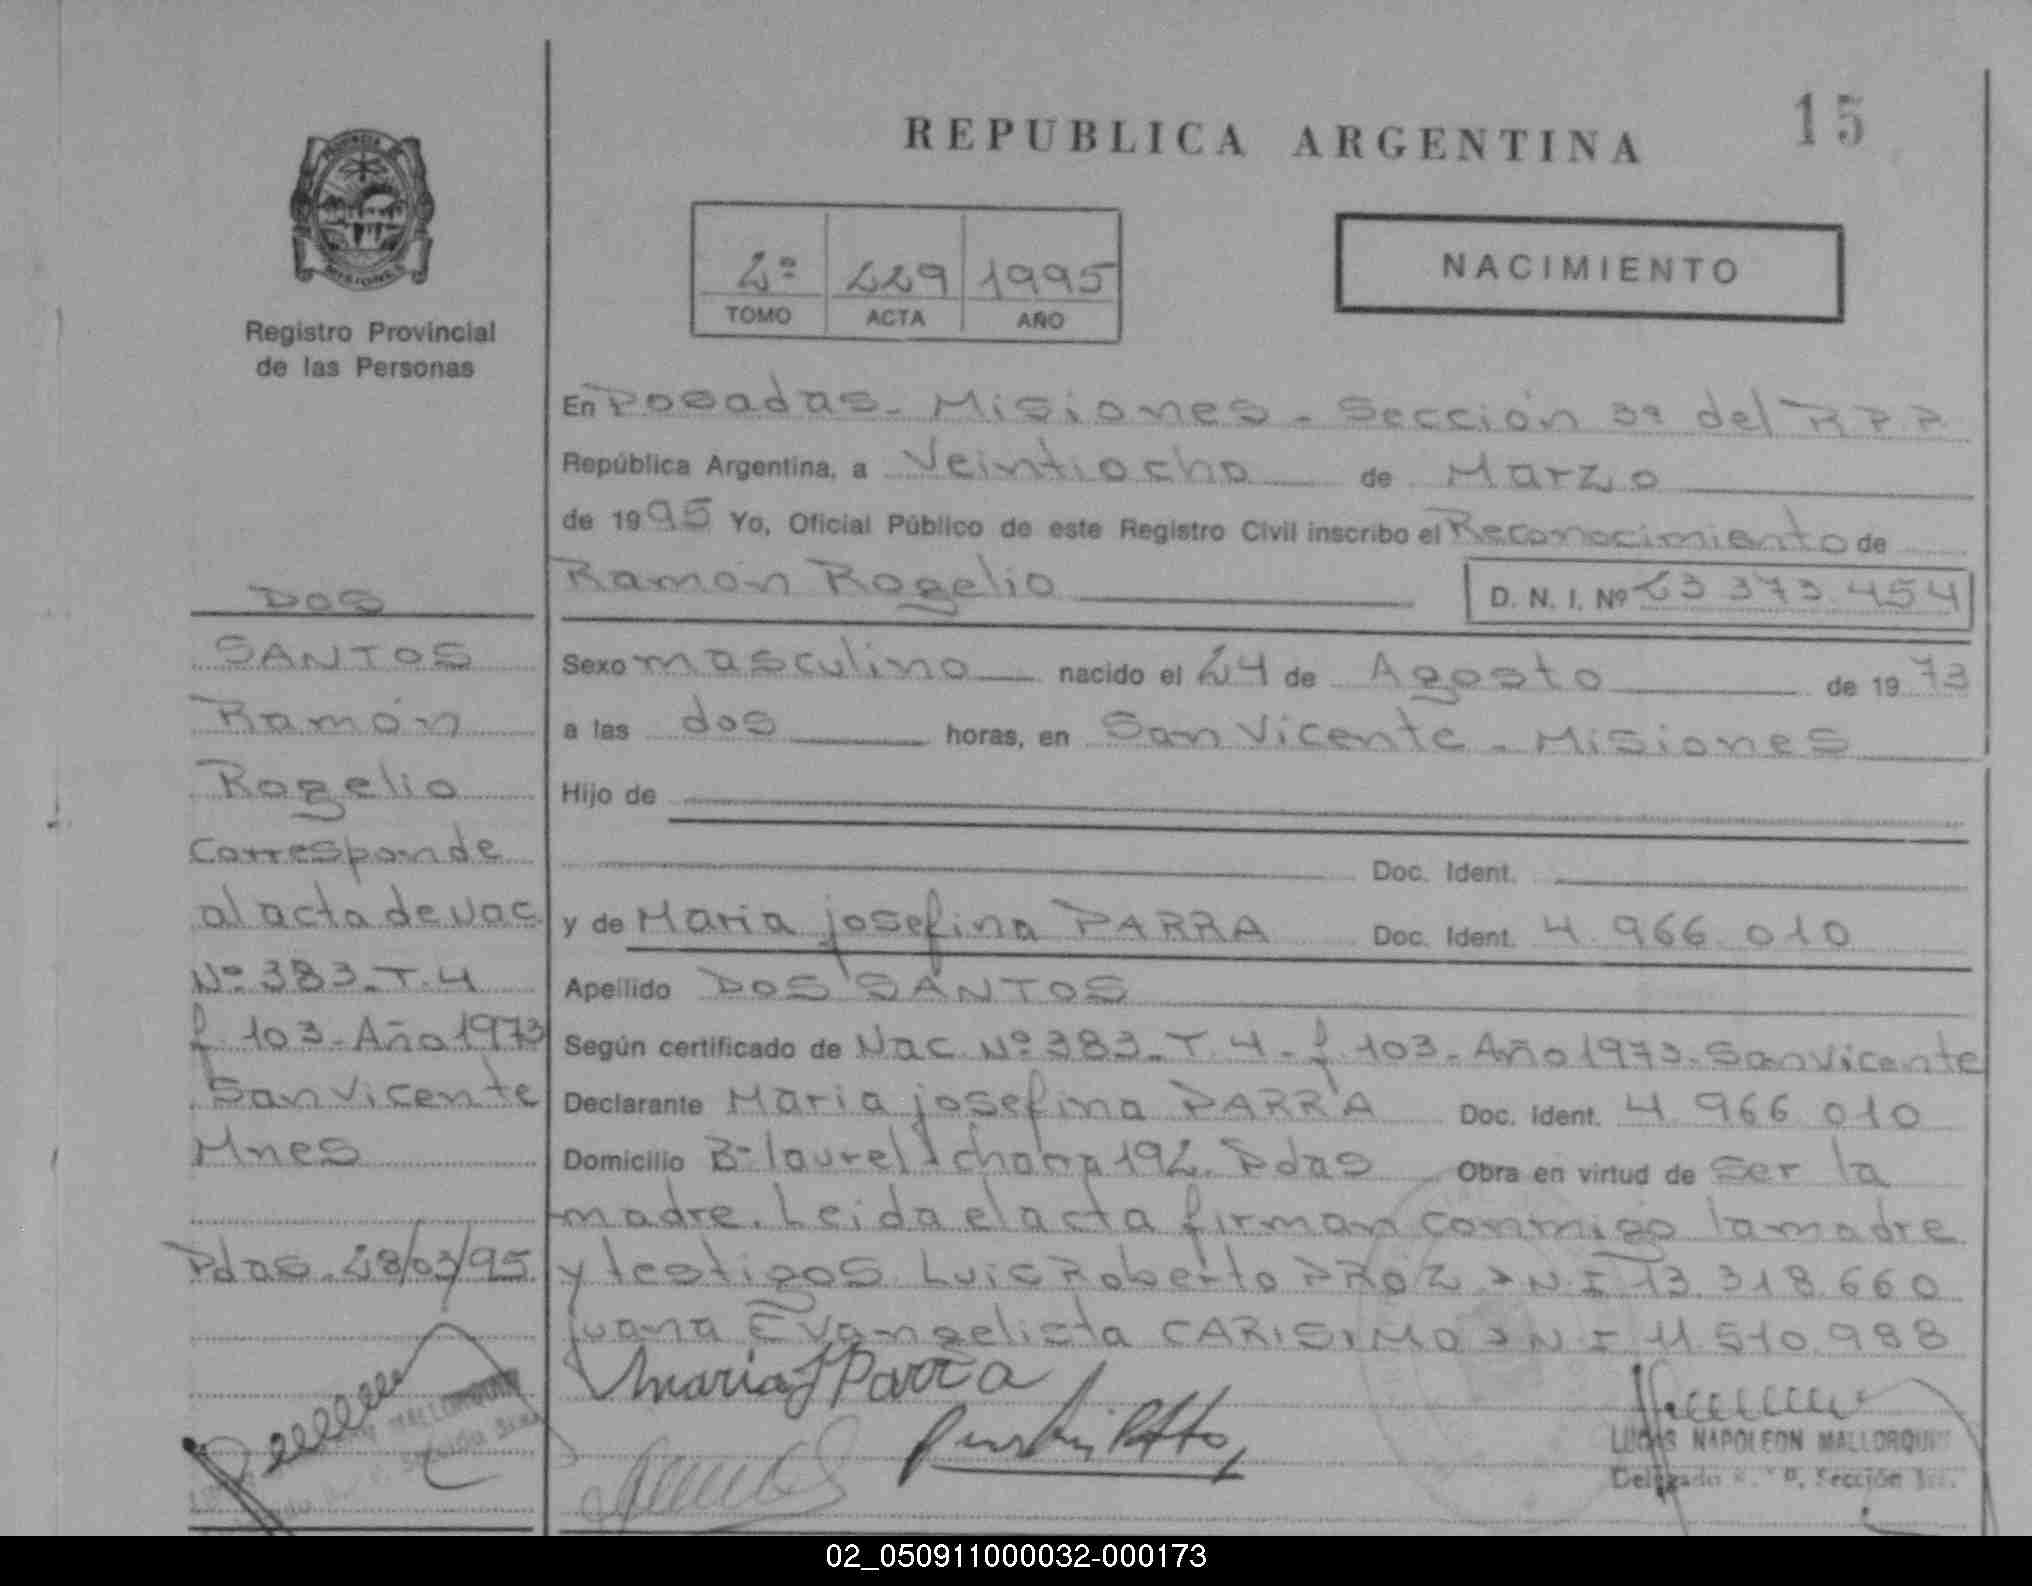 REPUBLICA ARGENTINA
15
2º 229 1995
TOMO ACTA AÑO
NACIMIENTO
Registro Provincial
de las Personas
DOS
SANTOS
Ramón
Rogelio
Corresponde
al acta de Nac.
Nº 383-T.4
f. 103-Año 1973
San Vicente
Mnes
Pdas. 28/03/95
En Posadas - Misiones - Sección 3ª del R P P
República Argentina, a Veintiocho de Marzo
de 1995 Yo, Oficial Público de este Registro Civil inscribo el Reconocimiento de
Ramón Rogelio D. N. I. Nº 23 373 454
Sexo masculino nacido el 24 de Agosto de 1973
a las dos horas, en San Vicente - Misiones
Hijo de
Doc. Ident.
y de Maria josefina PARRA Doc. Ident. 4 966 010
Apellido DOS SANTOS
Según certificado de Nac. Nº 383-T.4-f. 103-Año 1973-San Vicente
Declarante Maria josefina PARRA Doc. Ident. 4 966 010
Domicilio Bº laurel chapa 192. Pdas Obra en virtud de ser la
madre. Leida el acta firman conmigo la madre
y testigos Luis Roberto DNI 13.318.660
juana Evangelista CARISIMO DNI 11.510.988
Maria J Parra
LUCAS NAPOLEON MALLORQUIN
Delegado Sección
MALLORQUIN
Sección
02_050911000032-000173